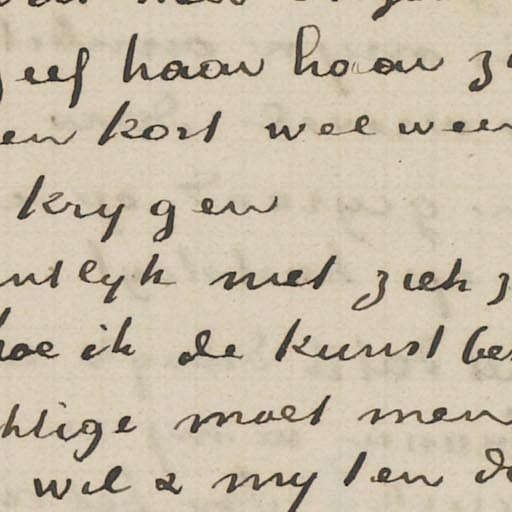 geef haar haar z
en kort wel weer
krygen
ntlyk met ziek z
hoe ik de kunst be
chtige moet men
wil & my ten d